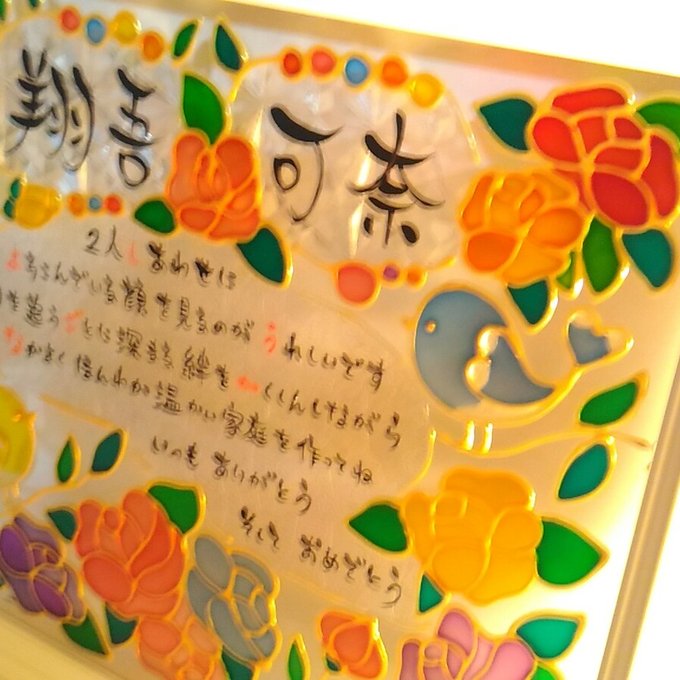 翔吾 可奈
2人しあわせに
よろこんでいる顔を見るのがうれしいです
を追うごとに深まる絆を かくしんしながら
なかよく 温かい家庭を作ってね
いつもありがとう
そして おめでとう